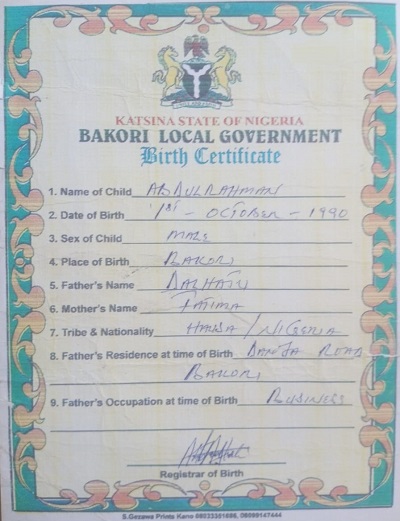 KATSINA STATE OF NIGERIA
BAKORI LOCAL GOVERNMENT
Birth Certificate
1. Name of Child ABDULRAHMAN
2. Date of Birth 1st - OCTOBER - 1990
3. Sex of Child MALE
4. Place of Birth BAKORI
5. Father's Name DALHATU
6. Mother's Name FATIMA
7. Tribe & Nationality HAUSA / NIGERIA
8. Father's Residence at time of Birth DANJA ROAD
BAKORI
9. Father's Occupation at time of Birth BUSINESS
Registrar of Birth
S.Gezawa Prints Kano